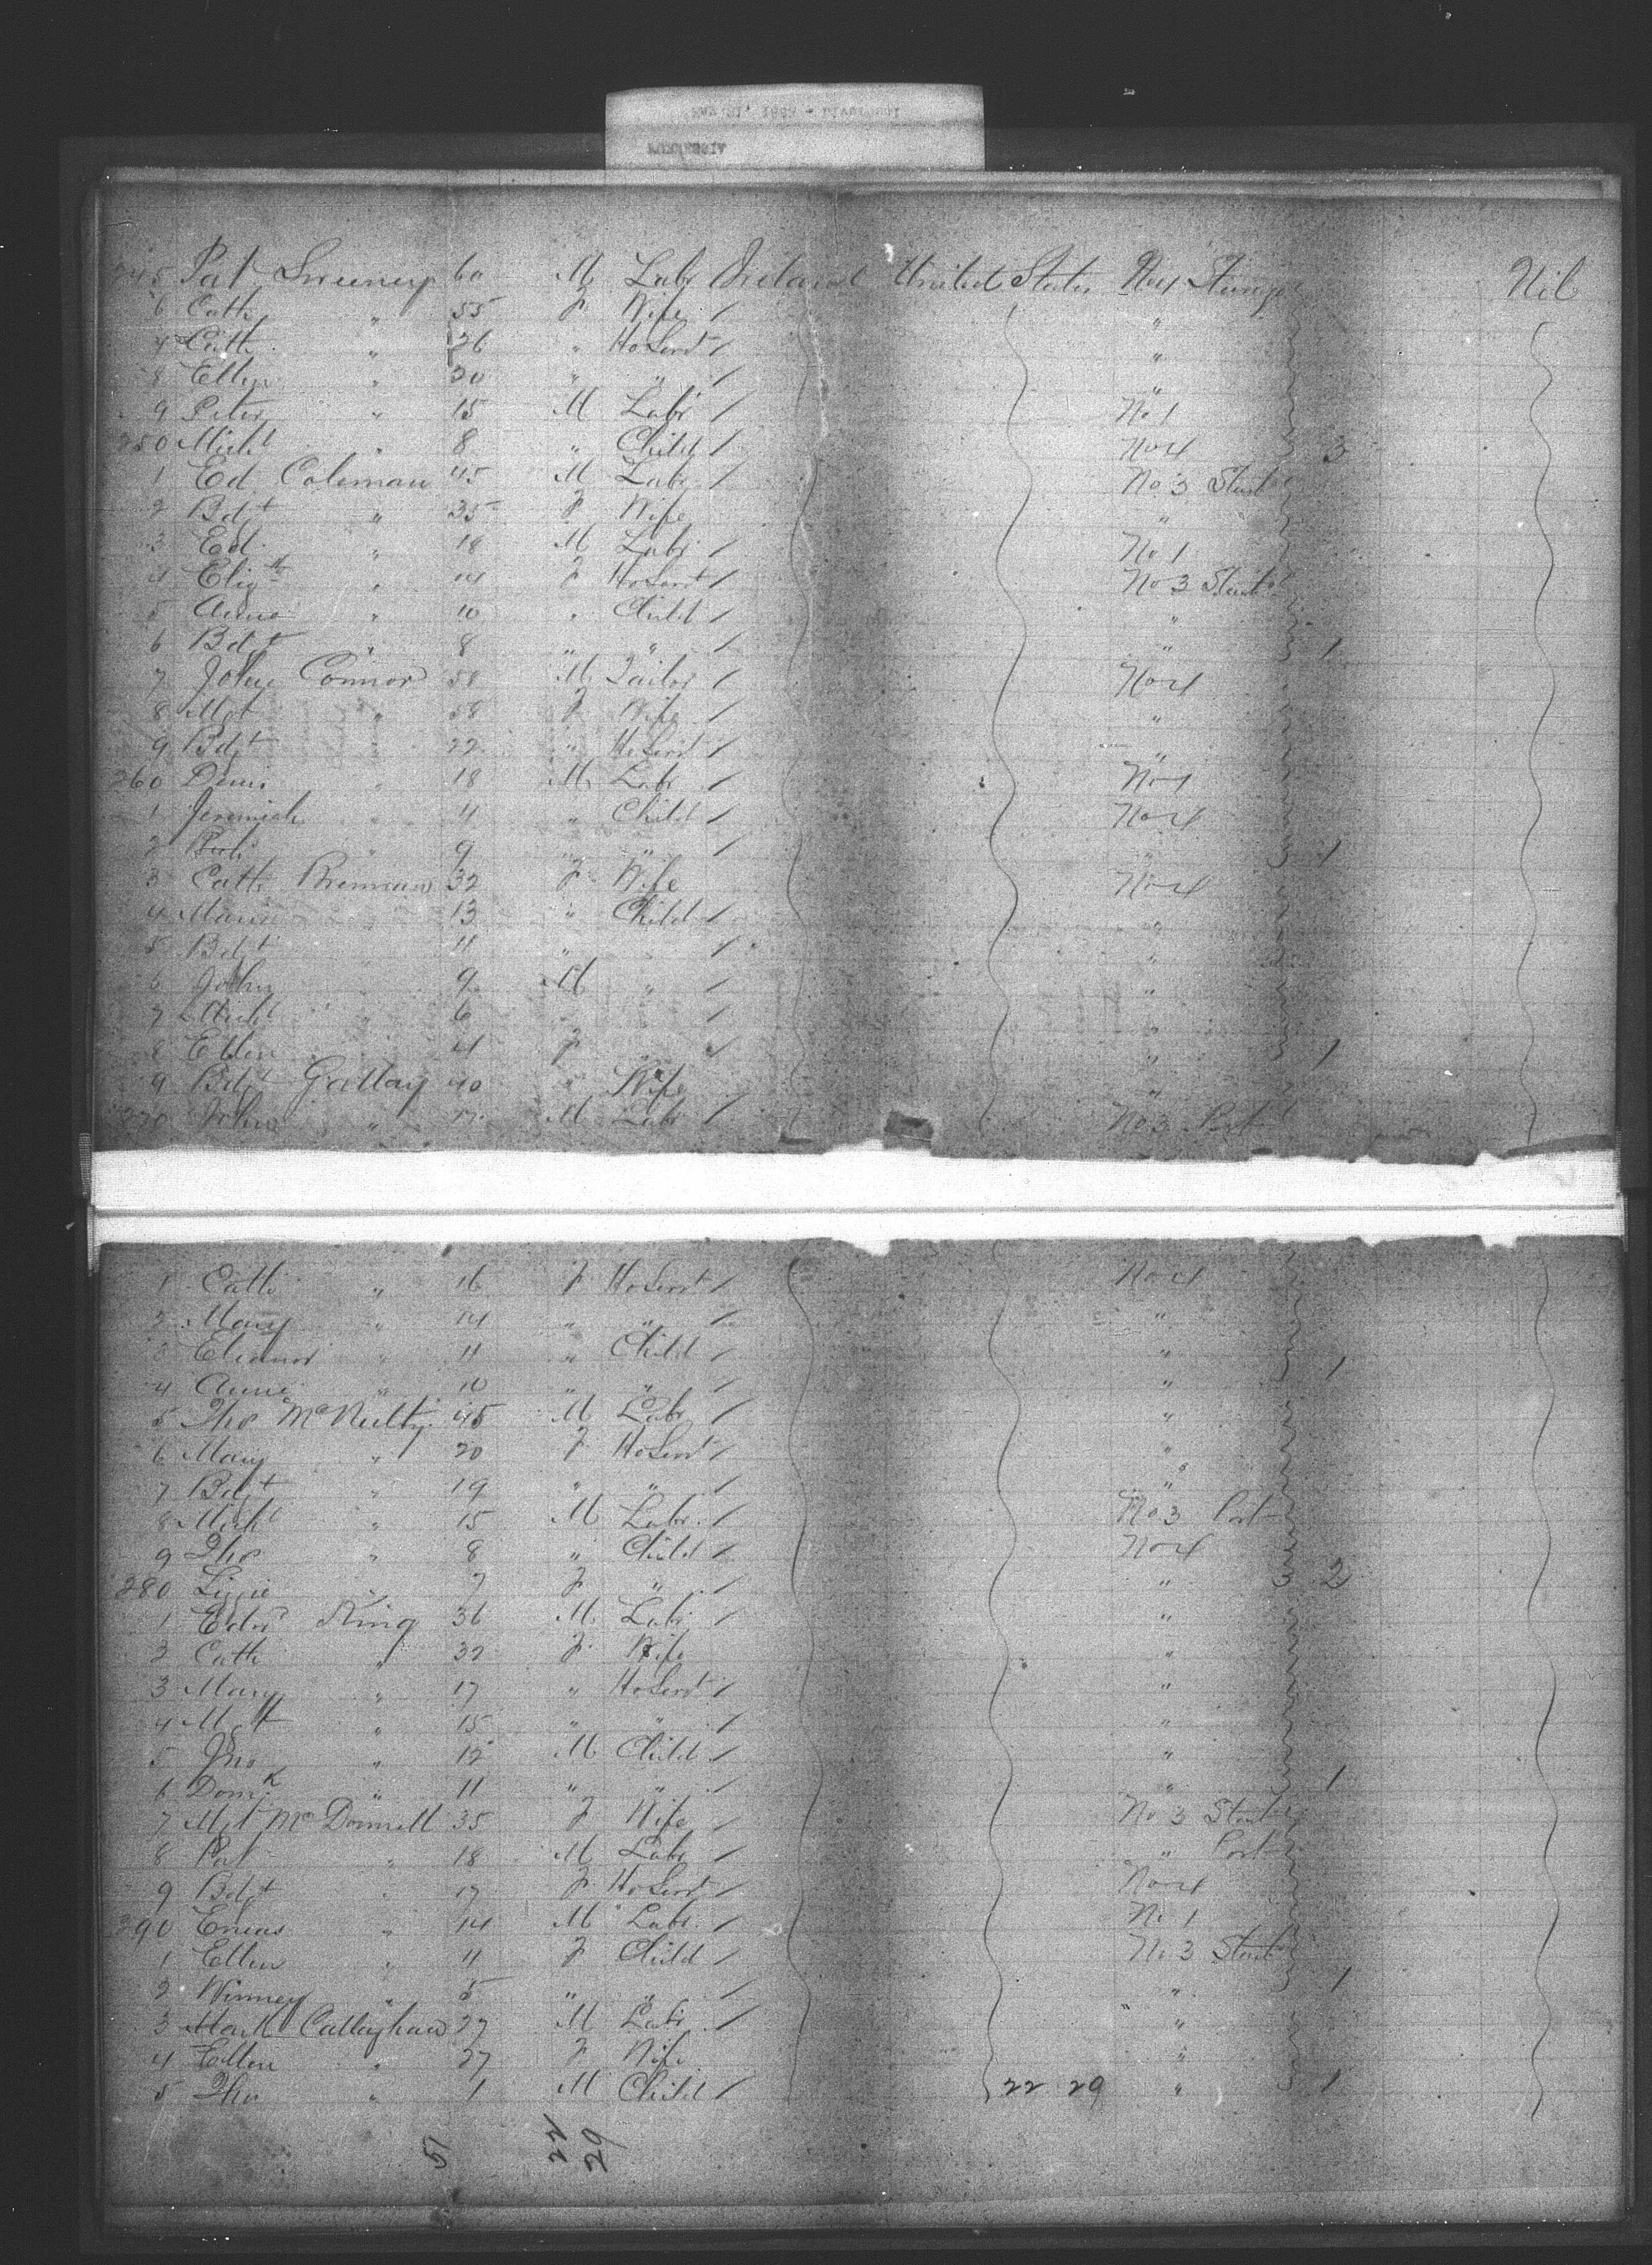 245 Pat Sweeney 60 M Labr Ireland United States No 4 Steerage Nil
6 Cath " 55 F Wife /
7 Cath " 26 " Ho Servt / "
8 Ellen " 20 " " / "
9 Peter " 15 M Labr / No 1
250 Michl " 8 " Child / No 4 3
1 Ed Coleman 45 M Labr No 3 Starb
2 Bdgt " 35 F Wife "
3 Ed " 18 M Labr / No 1
4 Elizth " 14 F Ho Servt / No 3 Starb
5 Anne " 10 " Child "
6 Bdgt " 8 " " / " 1
7 John Connor 58 M Tailor / No 4
8 Mgt " 58 F Wife / "
9 Bdgt " 22 " Ho Servt / "
260 Denis " 18 M Labr / No 1
1 Jeremiah " 4 " Child / No 4
2 " 9 " " / " 1
3 Cath Brennan 32 F Wife No 4
4 Maria " 13 " Child / "
5 Bdgt " 11 " / "
6 John " 9 M " / "
7 Michl " 6 " /
8 Ellen " 4 F " / " 1
9 Bdgt Gallay 40 " Wife "
270 John " 17 M Labr / No 3 Port
1 Cath " 16 F Ho Servt / No 4
2 Mary " 14 " " / "
3 Eleanor " 11 " Child / " 1
4 Anne " 10 " " / "
5 Tho McNulty 45 M Labr / "
6 Mary " 20 F Ho Servt / "
7 Bdgt " 19 " " / "
8 Michl " 15 M Labr / No 3 Port
9 Tho " 8 " Child / No 4
280 Lizzie " 7 F " / " 2
1 Edwd King 36 M Labr / "
2 Cath " 32 F Wife "
3 Mary " 17 " Ho Servt / "
4 Mgt " 15 " " / "
5 Jno " 12 M Child / "
6 Domk " 11 " " / " 1
7 Mgt McDonnell 35 F Wife / No 3 Starb
8 Pat " 18 M Labr / " Port
9 Bdgt " 17 F Ho Servt / No 4
290 Eneas " 14 M Labr / No 1
1 Ellen " 11 F Child / No 3 Starb
2 Winney " 5 " " / " 1
3 Mark Callaghan 27 M Labr / "
4 Ellen " 27 F Wife "
5 Tho " 1 M Child / 22 29 " 1
51 22 29